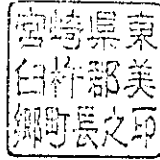 宮崎県東
臼杵郡美
郷町長之印